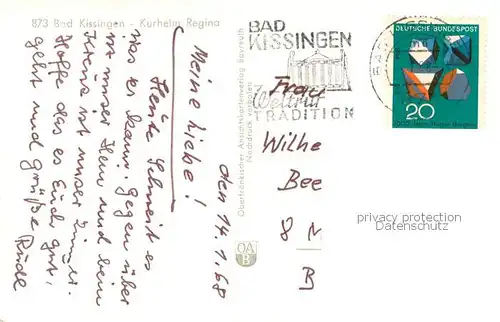 873 Bad Kissingen - Kurheim Regina
den 14.1.68
Meine Liebe!
Heute Schneit es
was es kann. Gegenüber
ist unser Heim und beim
Kreuz ist unser Zimmer.
Hoffe das es Euch gut
geht und Grüße
Oberfränkischer Ansichtskartenverlag Bayreuth
Nachdruck verboten
OA
B
BAD
KISSINGEN
Weltruf
TRADITION
DEUTSCHE BUNDESPOST
20
Frau
Wilhe
Bee
8 M
B
privacy protection
Datenschutz